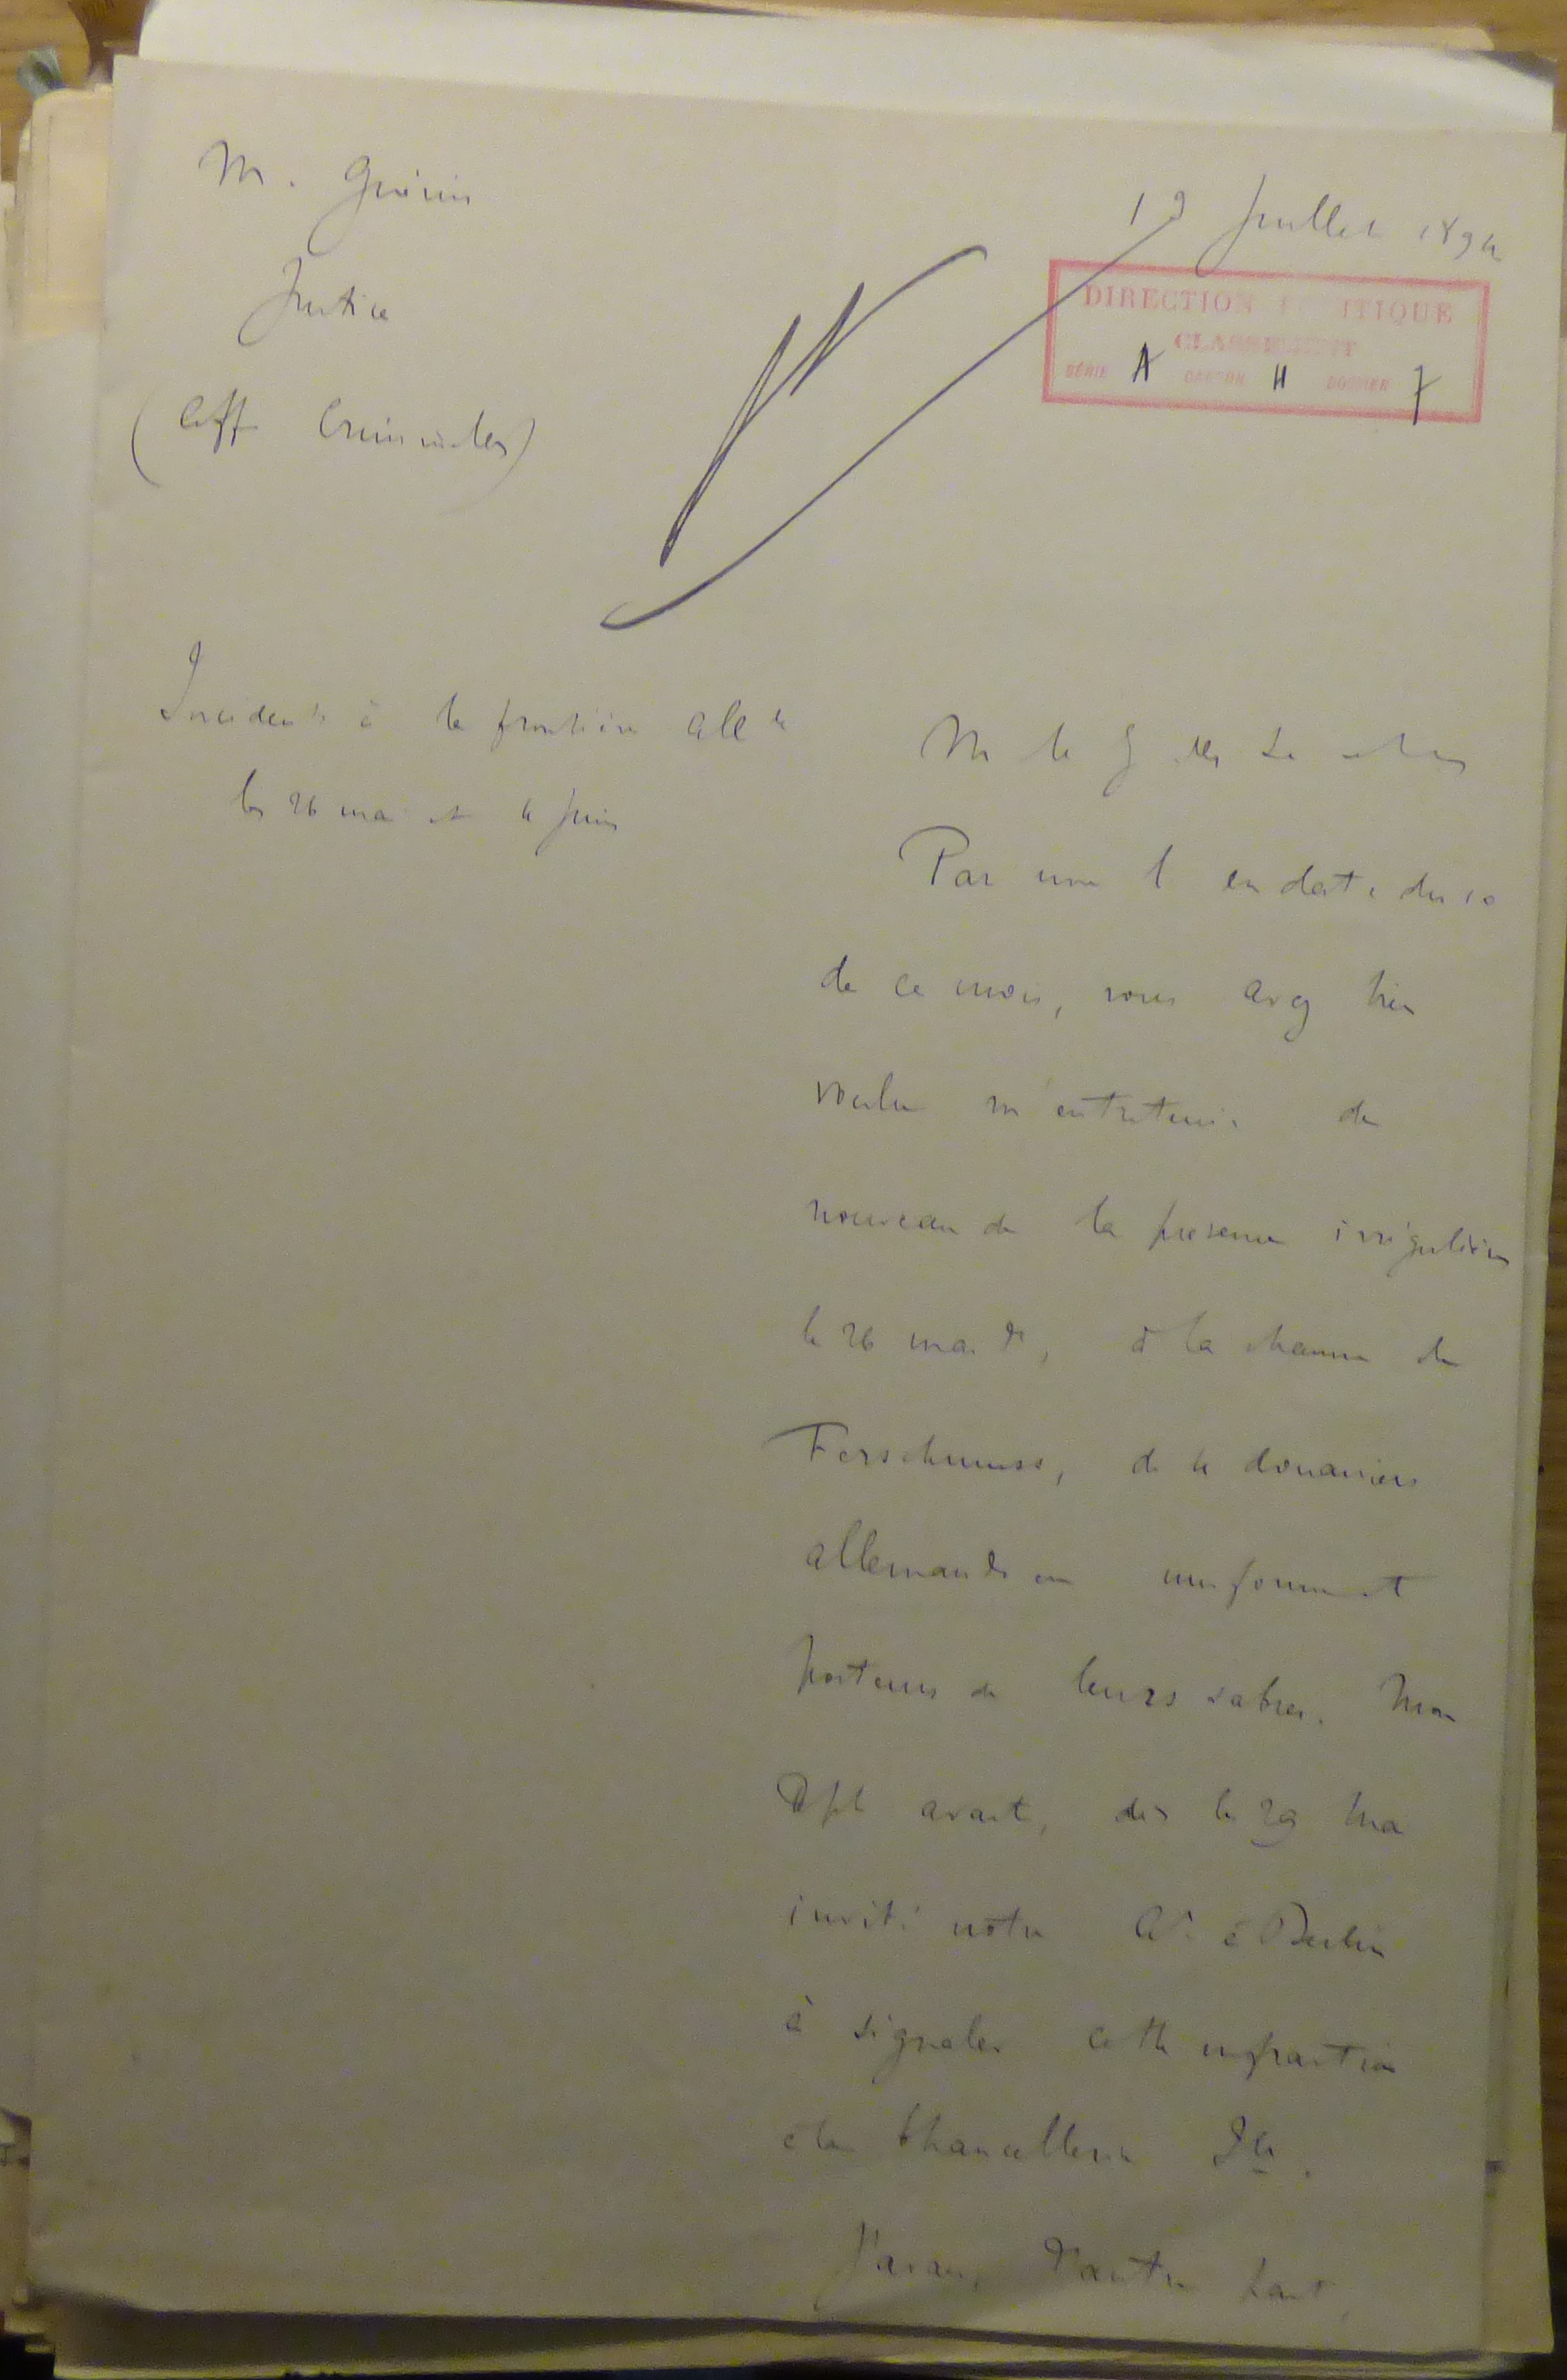 M. Guérin
Justice
(Aff Criminelles)
19 Juillet 1894
DIRECTION POLITIQUE
CLASSEMENT
SÉRIE A CARTON 11 DOSSIER 7
Incidents à la frontière Allde
les 26 mai et 4 juin
M le G des Sceaux
Par une l en date du 10
de ce mois, vous avez bien
voulu m'entretenir de
nouveau de la présence irrégulière
le 26 mai dr, à la chaume de
Ferschmuss, de 4 douaniers
allemands en uniforme et
porteurs de leurs sabres. Mon
Dpt avait, dès le 29 mai
invité notre Ar à Berlin
à signaler cette infraction
à la Chancellerie Ile.
J'avais, d'autre part,